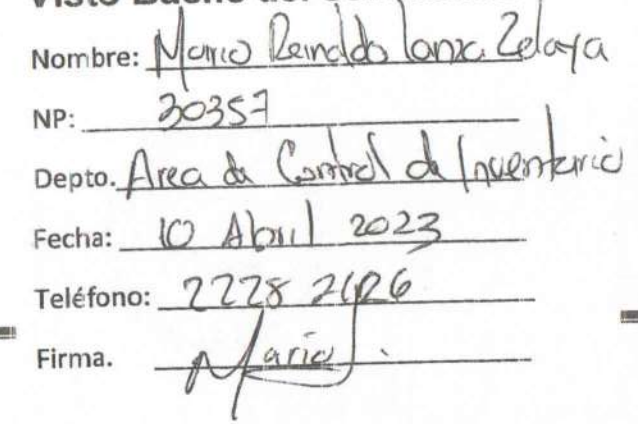 Visto Bueno del
Nombre: Mario Reinaldo Lanza Zelaya
NP: 30357
Depto. Area de Control de Inventario
Fecha: 10 Abril 2023
Teléfono: 2228 2626
Firma. Mario